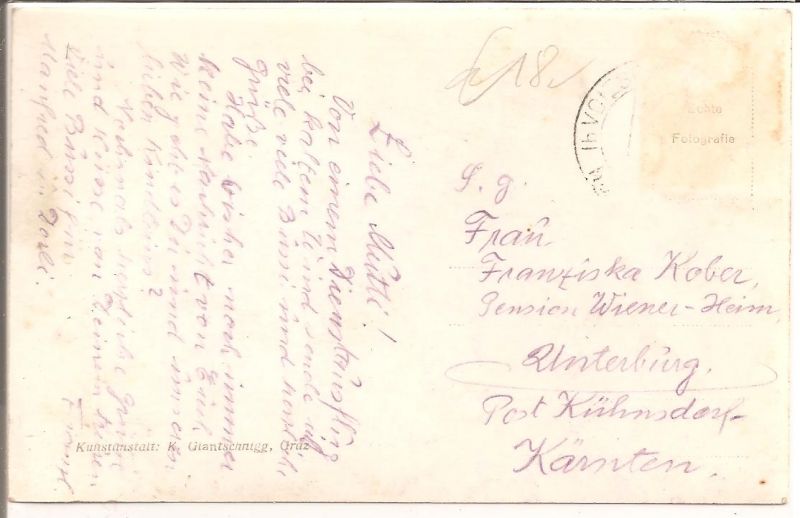 Liebe Mutti!
Von einem Dienstausflug
bei kaltem Wind sende ich
viele viele Bussi und herzliche
Grüße.
Habe bisher noch immer
keine Nachricht von Euch.
Wie geht es Dir und unseren
lieben Kindlein?
Nochmals herzliche Grüße
und Küsse von Deinem
Viele Bussi für
Manfred u.
£ 18
Echte
Fotografie
S. g.
Frau
Franziska Kober,
Pension Wiener-Heim,
Unterburg,
Post Kühnsdorf
Kärnten.
Kunstanstalt: K. Giantschnigg, Graz